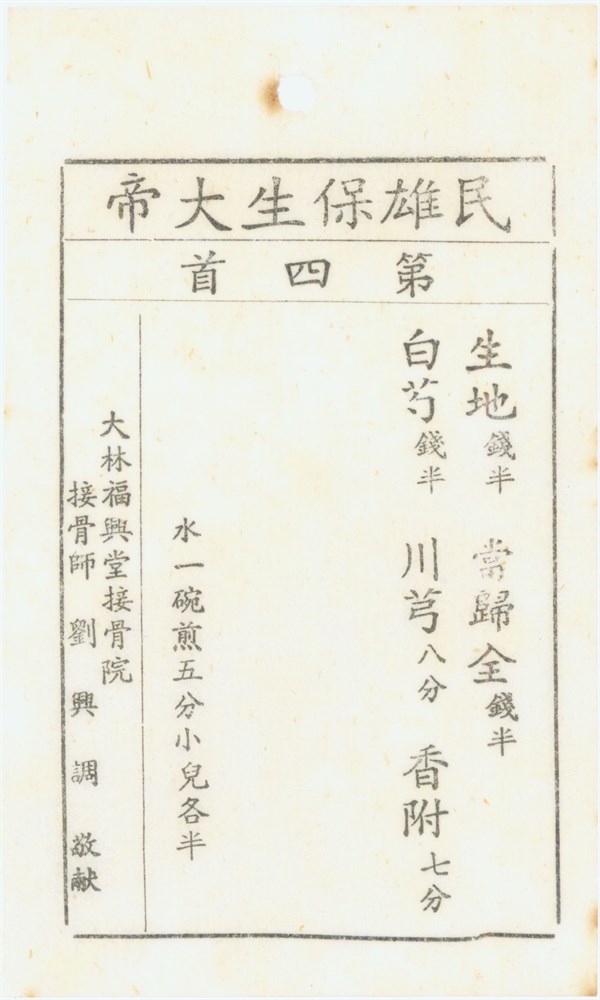 民雄保生大帝
第四首
生地錢半 當歸全錢半
白芍錢半 川芎八分 香附七分
水一碗煎五分小兒各半
大林福興堂接骨院
接骨師 劉興調 敬献